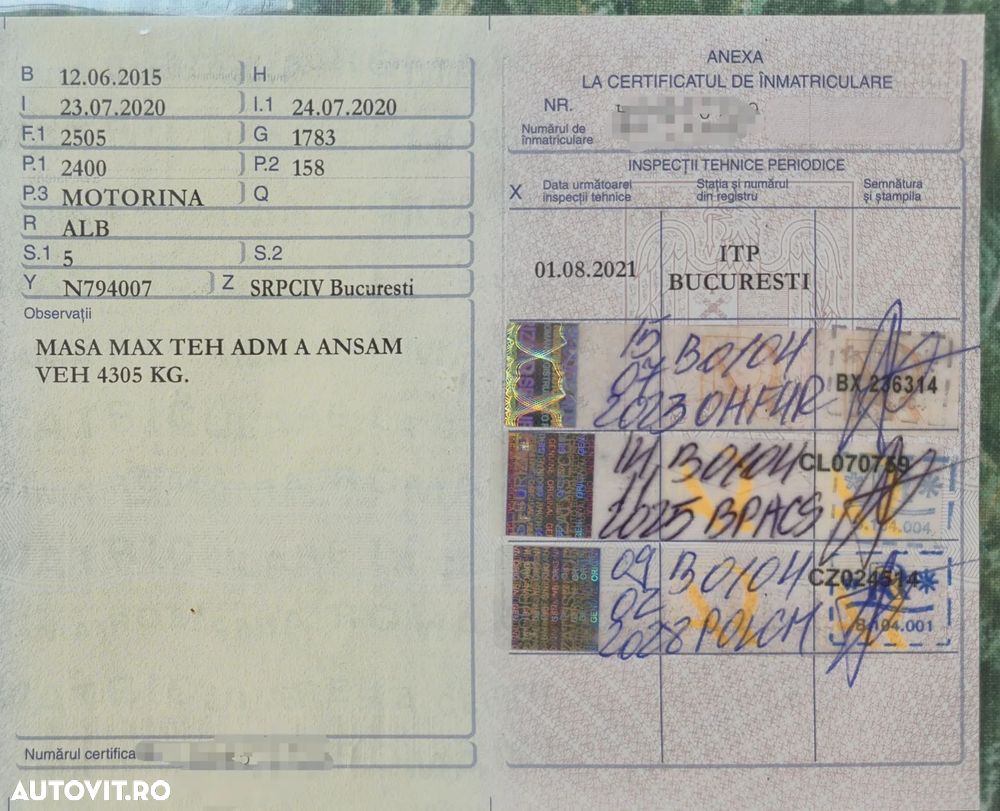 B 12.06.2015 H
I 23.07.2020 I.1 24.07.2020
F.1 2505 G 1783
P.1 2400 P.2 158
P.3 MOTORINA Q
R ALB
S.1 5 S.2
Y N794007 Z SRPCIV Bucuresti
Observații
MASA MAX TEH ADM A ANSAM
VEH 4305 KG.
Numărul certifica
ANEXA
LA CERTIFICATUL DE ÎNMATRICULARE
NR.
Numărul de
înmatriculare
INSPECȚII TEHNICE PERIODICE
X Data următoarei
inspecții tehnice
Stația și numărul
din registru
Semnătura
și ștampila
01.08.2021
ITP
BUCURESTI
15
07
2023
B0104
OHFUR
BX 236314
14
11
2025
B0104
BPACS
CL070759
B.194.004.
09
02
2028
B0104
POLCM
CZ024514
B.194.001
AUTOVIT.RO